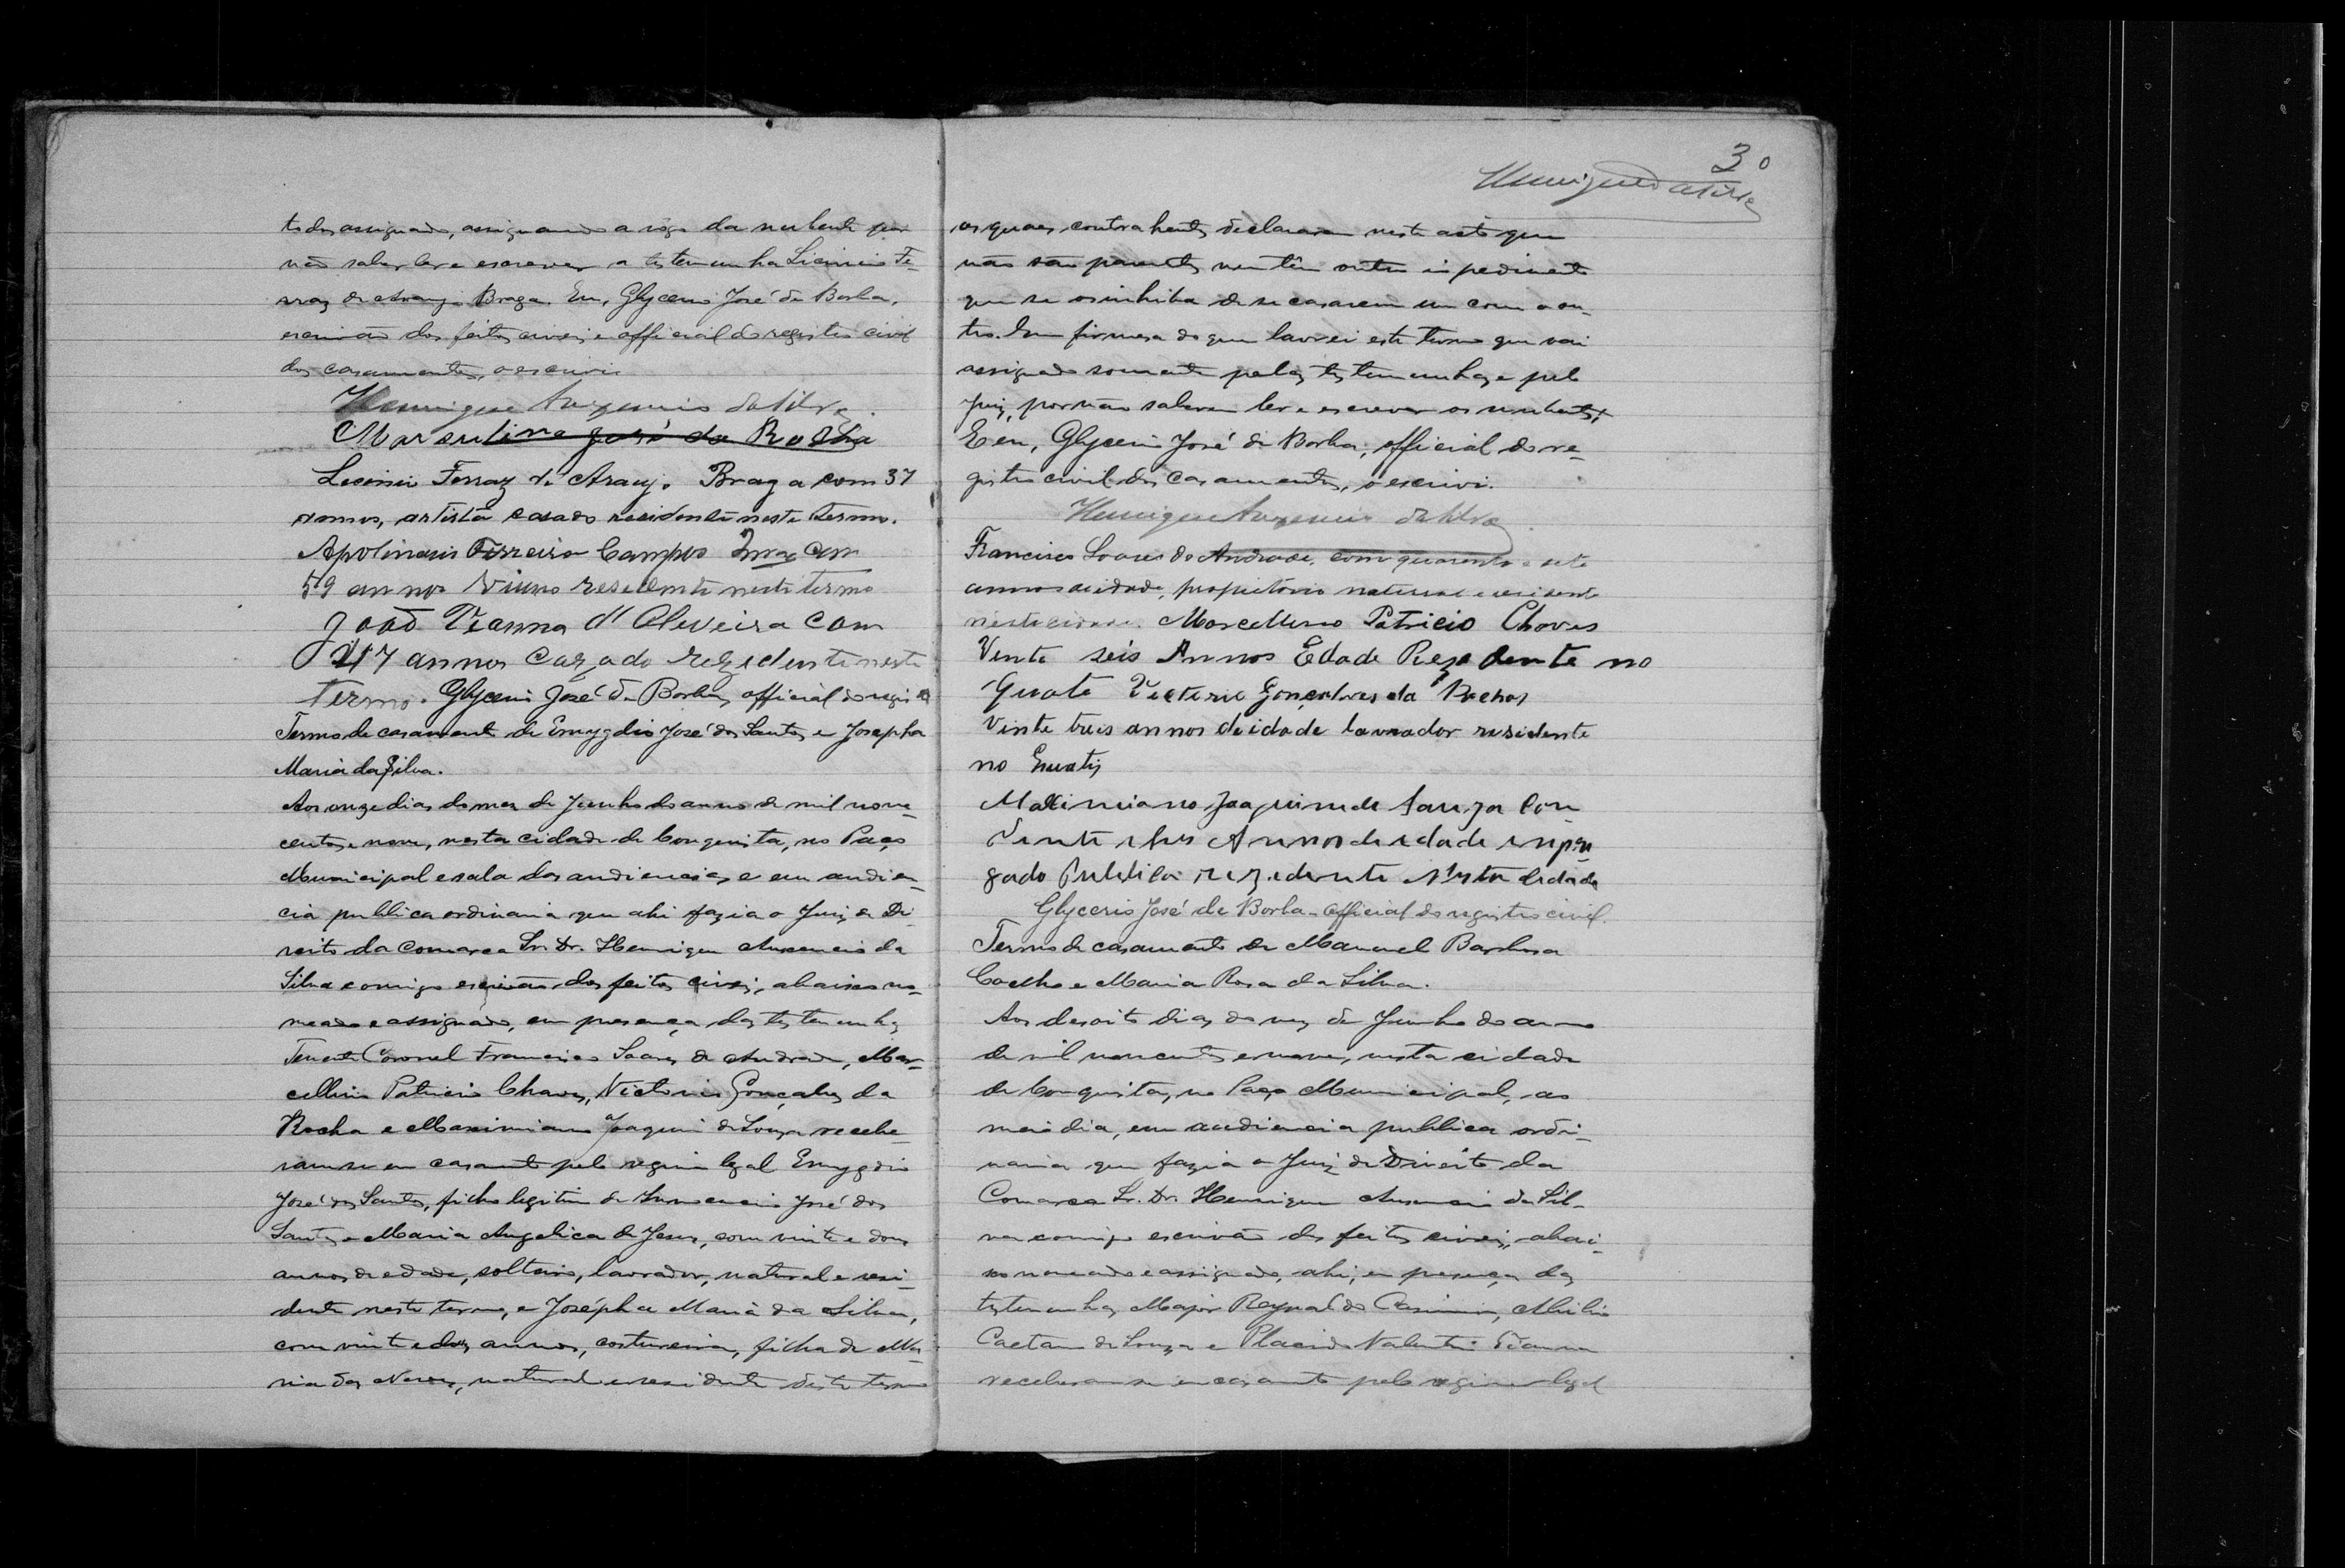 todos assignado, assignando a rogo da nubente por
não saber ler e escrever a testemunha Licinio Fe-
rraz de Araujo Braga. Eu, Glycerio José de Borba,
escrivão dos feitos civeis e official do registro civil
dos casamentos, o escrevi
Henrique Auxencio da Silva.
Marculino José da Rocha
Licinio Ferraz de Araujo Braga com 37
annos, artista casado residente neste termo.
Apolinario Ferreira Campos com
59 annos Viuvo residente neste termo
João Vianna d'Oliveira com
47 annos cazado rezidente neste
termo. Glycerio José de Borba, official do registro
Termo de casamento de Emygdio José dos Santos e Josepha
Maria da Silva.
Aos onze dias do mez de Junho do anno de mil nove-
centos e nove, nesta cidade de Conquista, no Paço
Municipal e sala das audiencias e em audien-
cia publica ordinaria que ahi fazia o Juiz de Di-
reito da Comarca Sr. Dr. Henrique Auxencio da
Silva comigo escrivão dos feitos civeis, abaixo no-
meado e assignado, em presença das testemunhas
Tenente Coronel Francisco Soares de Andrade, Mar-
cellino Patricio Chaves, Victorio Gonçalves da
Rocha e Maximiano Joaquim de Souza recebe-
ram-se em casamento pelo regimen legal Emygdio
José dos Santos, filho legitimo de Innocencio José dos
Santos e Maria Angelica de Jesus, com vinte e dous
annos de edade, solteiro, lavrador, natural e resi-
dente neste termo, e Josépha Maria da Silva,
com vinte e dois annos, costureira, filha de Ma-
ria das Neves, natural e residente deste termo
30
Henrique da Silva
os quaes contrahentes declararam neste acto que
não são parentes nem têm outro impedimento
que se os inhiba de se casarem um com o ou-
tro. Em firmesa do que lavrei este termo que vai
assignado somente pelas testemunhas e pelo
Juiz, por não saberem ler e escrever os nubentes.
E eu, Glycerio José de Borba, official do re-
gistro civil dos casamentos, o escrivi.
Henrique Auxencio da Silva.
Francisco Soares de Andrade, com quarenta e sete
annos de idade, propietário natural e residente
nesta cidade. Marcellino Patricio Chaves
Vente seis Annos Edade Rezedente no
Guate Victorio Gonçalves da Rocha
Vinte treis annos de idade lavrador residente
no
Maximiano Joaquim de Souza Con
Vente e treis Annos de edade enpre
gado Publico rezedente Nesta Cidade
Glycerio José de Borba - official do registro civil.
Termo de casamento de Manuel Barbosa
Coelho e Maria Rosa da Silva.
Aos desoito dias do mez de Junho do anno
de mil novecentos e nove, nesta cidade
de Conquista, no Paço Municipal, ao
meio dia, em audiencia publica ordi-
naria que fazia o Juiz de Direito da
Comarca Sr. Dr. Henrique Auxencio da Sil-
va comigo escrivão dos feitos civeis, abai-
xo nomeado e assignado, ahi, em presença das
testemunhas Major Reynaldo
Caetano de Souza e Placido Valentim Vianna
receberam-se em casamento pelo regimen legal